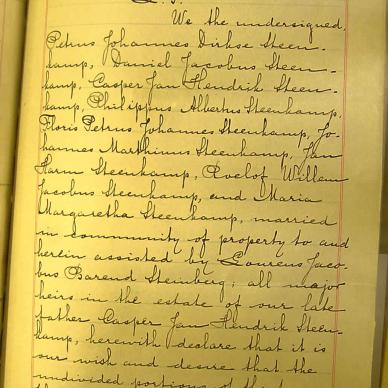 We the undersigned,
Petrus Johannes Dirkse Steen-
kamp, Daniel Jacobus Steen-
kamp, Casper Jan Hendrik Steen-
kamp, Philippus Albertus Steenkamp,
Floris Petrus Johannes Steenkamp, Jo-
hannes Marthinus Steenkamp, Jan
Harm Steenkamp, Roelof Willem
Jacobus Steenkamp, and Maria
Margaretha Steenkamp, married
in community of property to and
herein assisted by Lourens Jaco-
bus Barend Steinberg; all major
heirs in the estate of our late
father Casper Jan Hendrik Steen-
kamp, herewith declare that it is
our wish and desire that the
undivided portions of the